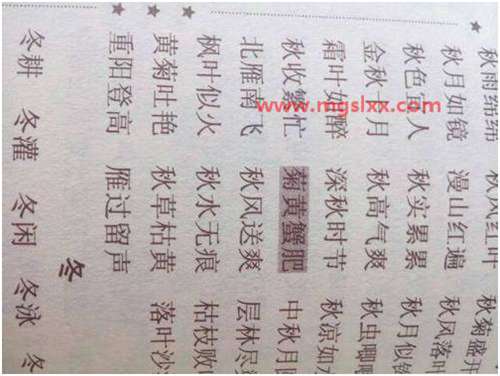 秋雨绵绵 秋风红叶 秋菊盛开
秋月如镜 漫山红遍 秋风落叶
秋色宜人 秋实累累 秋月似
金秋十月 秋高气爽 秋虫唧唧
霜叶如醉 深秋时节 秋凉如水
秋收繁忙 菊黄蟹肥 中秋月
北雁南飞 秋风送爽 层林尽
枫叶似火 秋水无痕 枯枝败
黄菊吐艳 秋草枯黄 落叶沙
重阳登高 雁过留声
冬
冬耕 冬灌 冬闲 冬泳 冬
www.mgslxx.com